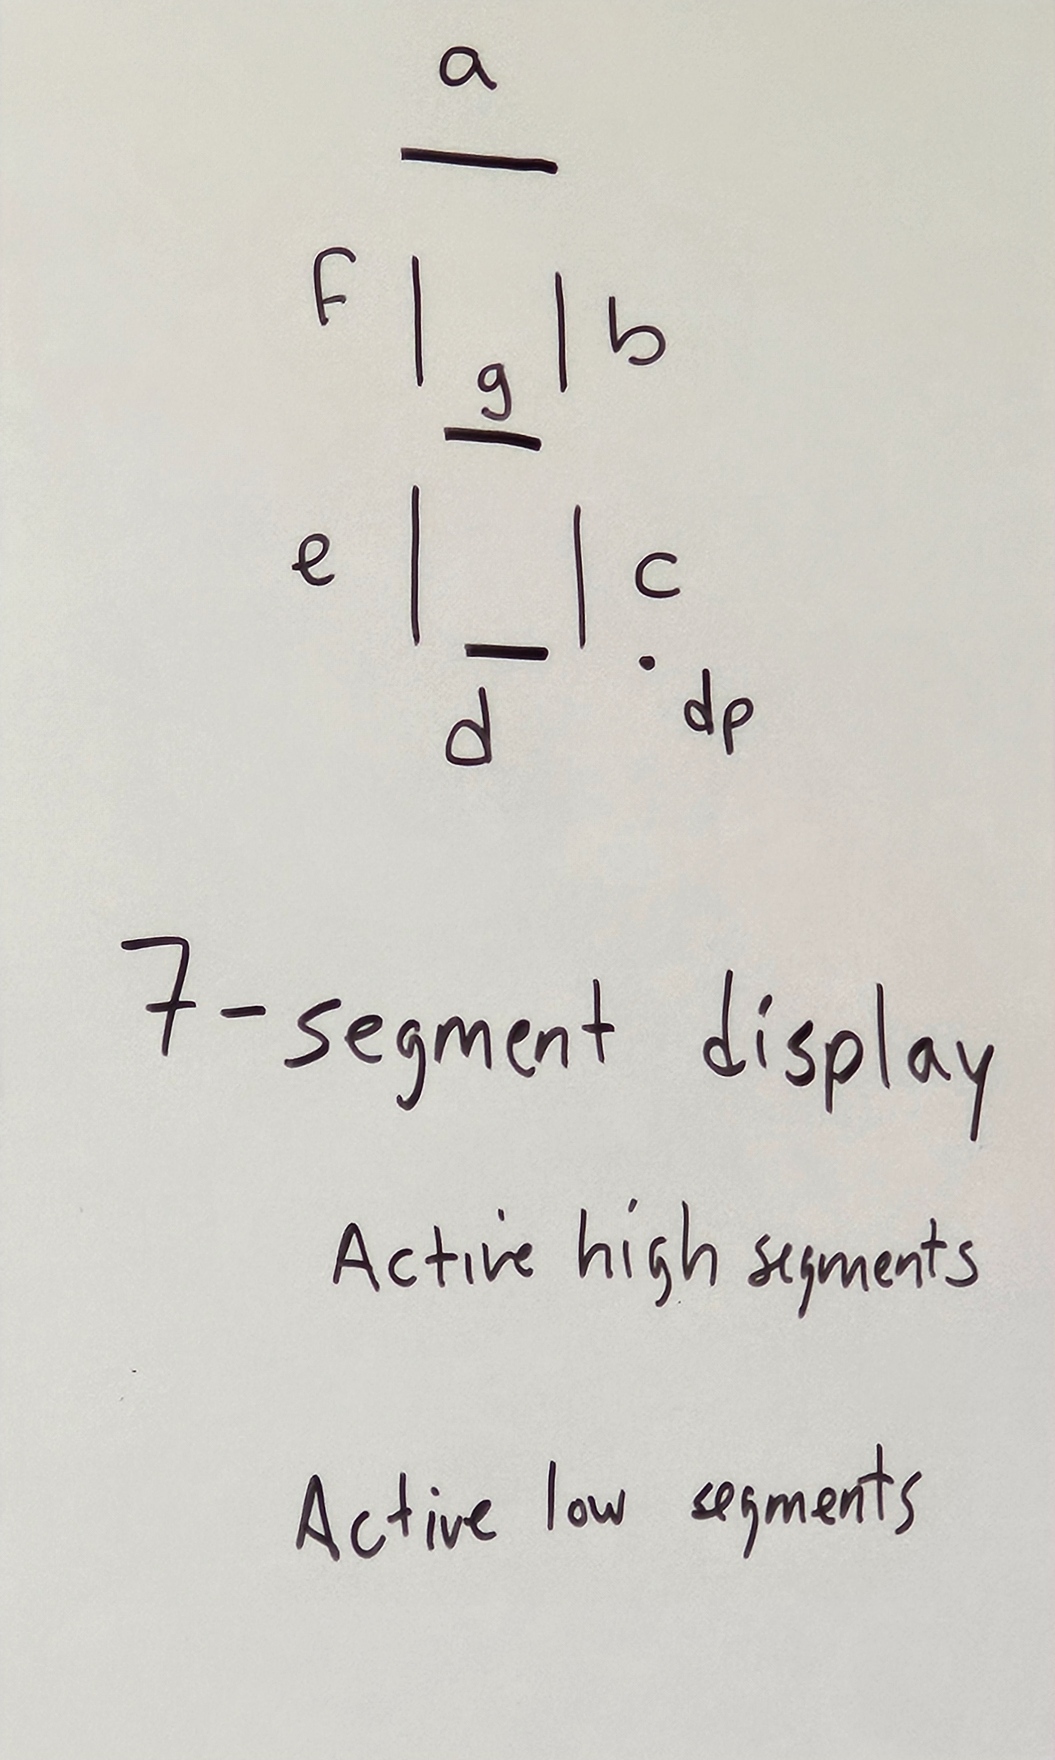 a
f
b
g
e
c
d
dp
7-segment display
Active high segments
Active low segments